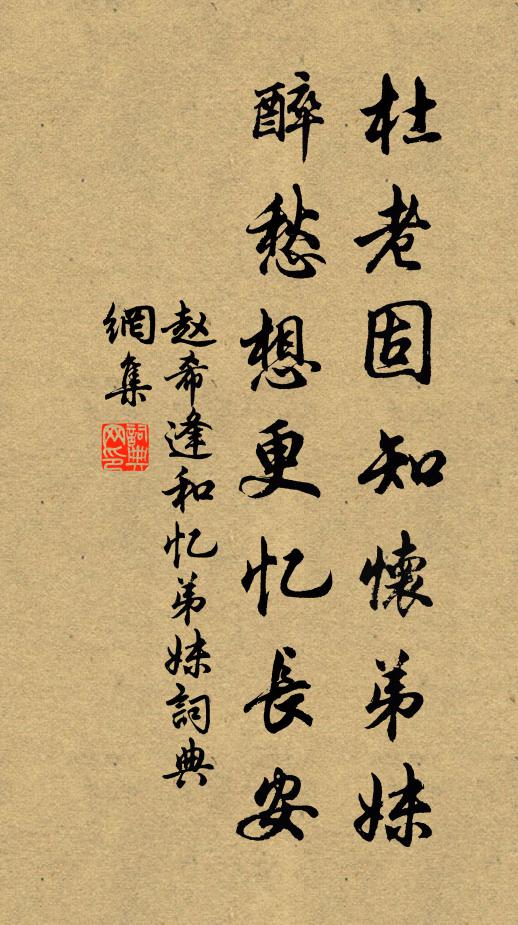 杜老固知懷弟妹
醉愁想更忆長安
赵希逢和忆弟妹詞典
網集
詞典网印